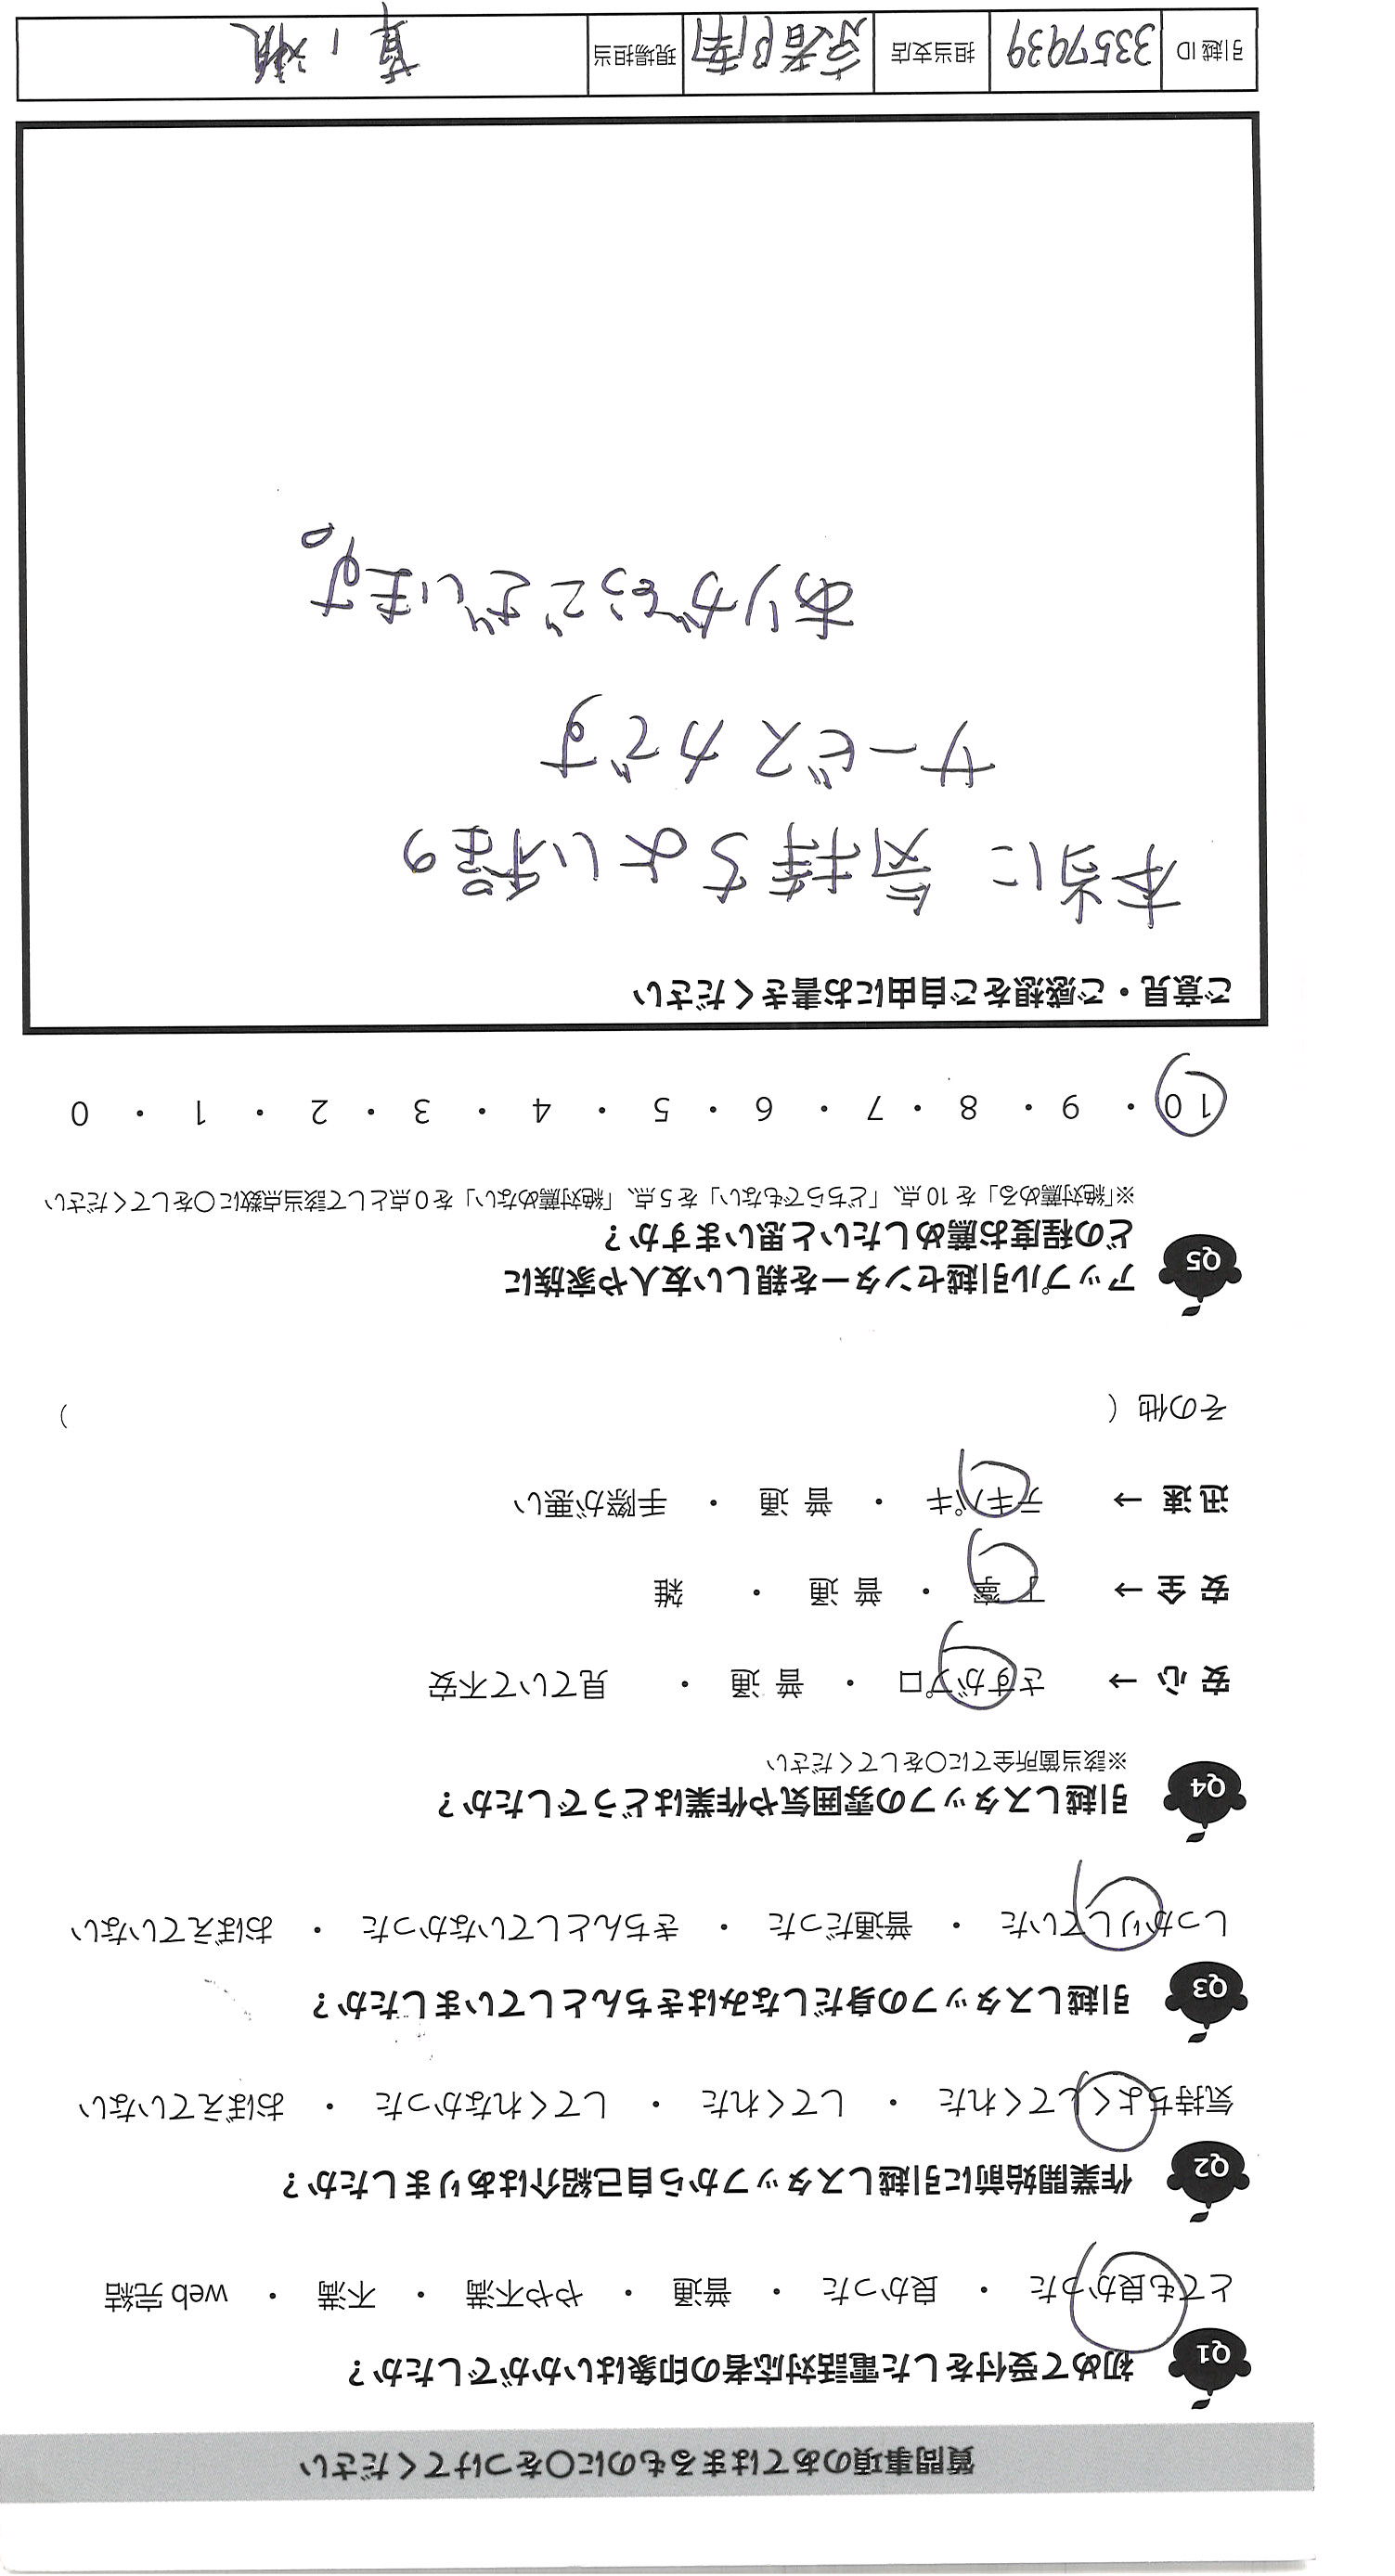 質問事項のあてはまるものに〇をつけてください
Q1 初めて受付をした電話対応者の印象はいかがでしたか？
とても良かった ・ 良かった ・ 普通 ・ やや不満 ・ 不満 ・ web 完結
Q2 作業開始前に引越しスタッフから自己紹介はありましたか？
気持ちよくしてくれた ・ してくれた ・ してくれなかった ・ おぼえていない
Q3 引越しスタッフの身だしなみはきちんとしていましたか？
しっかりしていた ・ 普通だった ・ きちんとしていなかった ・ おぼえていない
Q4 引越しスタッフの雰囲気や作業はどうでしたか？
※該当箇所全てに〇をしてください
安 心 → さすがプロ ・ 普 通 ・ 見ていて不安
安 全 → 丁寧 ・ 普 通 ・ 雑
迅 速 → テキパキ ・ 普 通 ・ 手際が悪い
その他（ ）
Q5 アップル引越センターを親しい友人や家族に
どの程度お薦めしたいと思いますか？
※「絶対薦める」を 10 点、「どちらでもない」を 5 点、「絶対薦めない」を 0 点として該当点数に〇をしてください
10 ・ 9 ・ 8 ・ 7 ・ 6 ・ 5 ・ 4 ・ 3 ・ 2 ・ 1 ・ 0
ご意見・ご感想をご自由にお書きください
本当に 気持ちよい程の
サービスカです
ありがとうございます。
引越 ID 3357939 担当支店 京都南 現場担当